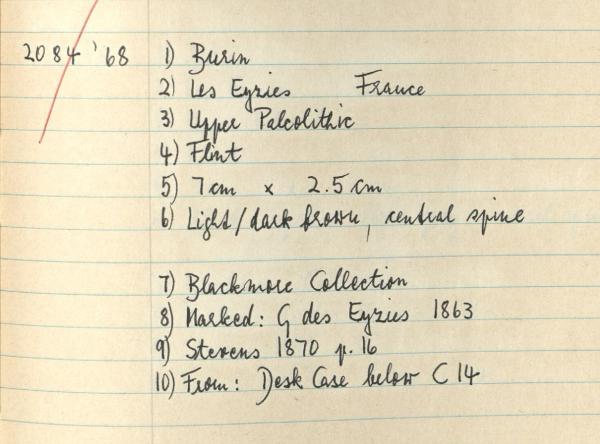 2084 '68 1) Burin
2) Les Eyzies France
3) Upper Paleolithic
4) Flint
5) 7cm x 2.5cm
6) Light/dark brown, central spine
7) Blackmore Collection
8) Marked: G des Eyzies 1863
9) Stevens 1870 p.16
10) From: Desk Case below C14